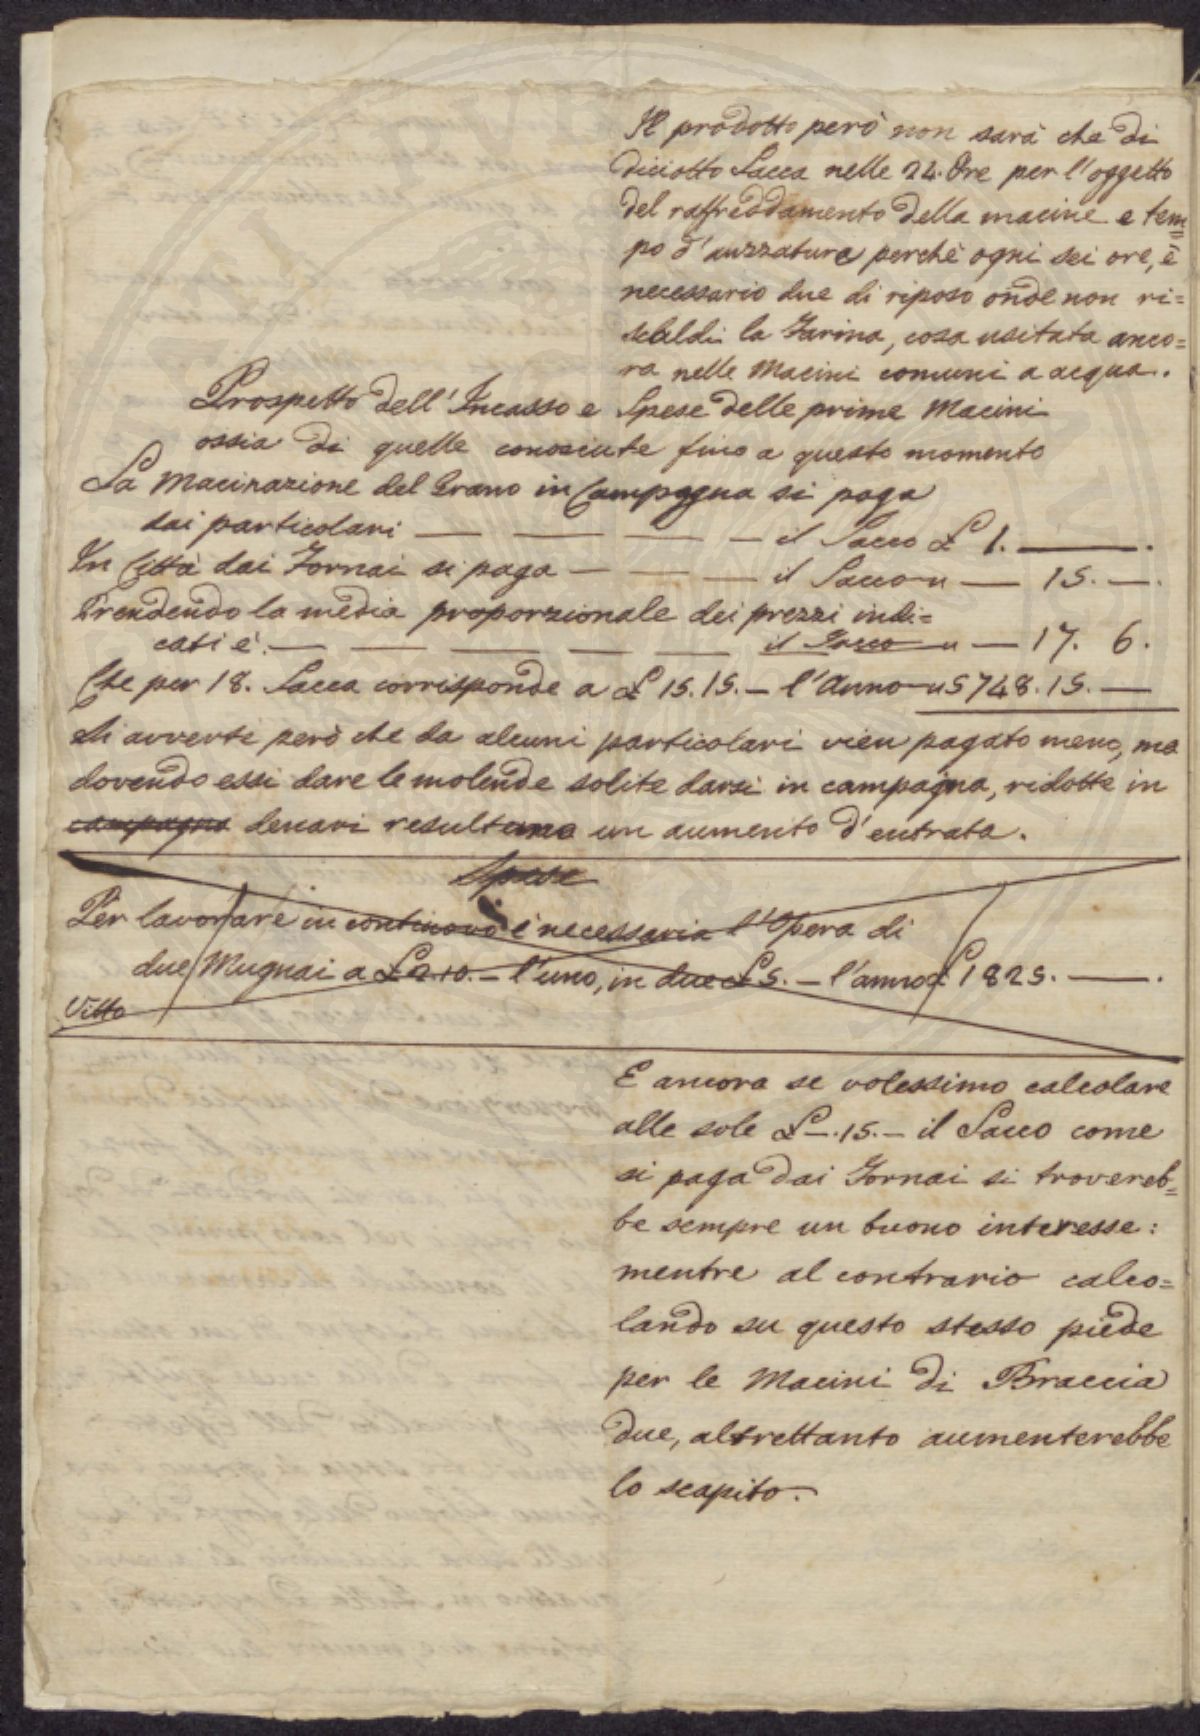 Il prodotto però non sarà che di
diciotto Sacca nelle 24. Ore per l'oggetto
del raffreddamento della macine e tem=
po d'auzzatura perchè ogni sei ore, è
necessario due di riposo onde non ri=
scaldi la Farina, cosa usitata anco=
ra nelle Macini comuni a acqua.
Prospetto dell'Incasso e Spese delle prime Macini
ossia di quelle conosciute fino a questo momento
La Macinazione del Grano in Campagna si paga
dai particolari — — — — il Sacco £ 1. — .
In Città dai Fornai si paga — — — il Sacco " — 15. — .
Prendendo la media proporzionale dei prezzi indi=
cati è. — — — — — il Sacco " — 17. 6.
Che per 18. Sacca corrisponde a £ 15.15. — l'Anno " 5748.15. —
Si avverte però che da alcuni particolari vien pagato meno, ma
dovendo essi dare le molende solite darsi in campagna, ridotte in
campagna denari resultano un aumento d'entrata.
Spese
Per lavorare in continovo è necessaria l'Opera di
due Mugnai a £ 2.10. — l'uno, in due £ 5. — l'anno £ 1825. — .
Vitto
E ancora se volessimo calcolare
alle sole £ —.15. — il Sacco come
si paga dai Fornai si trovereb=
be sempre un buono interesse:
mentre al contrario calco=
lando su questo stesso piede
per le Macini di Braccia
due, altrettanto aumenterebbe
lo scapito.